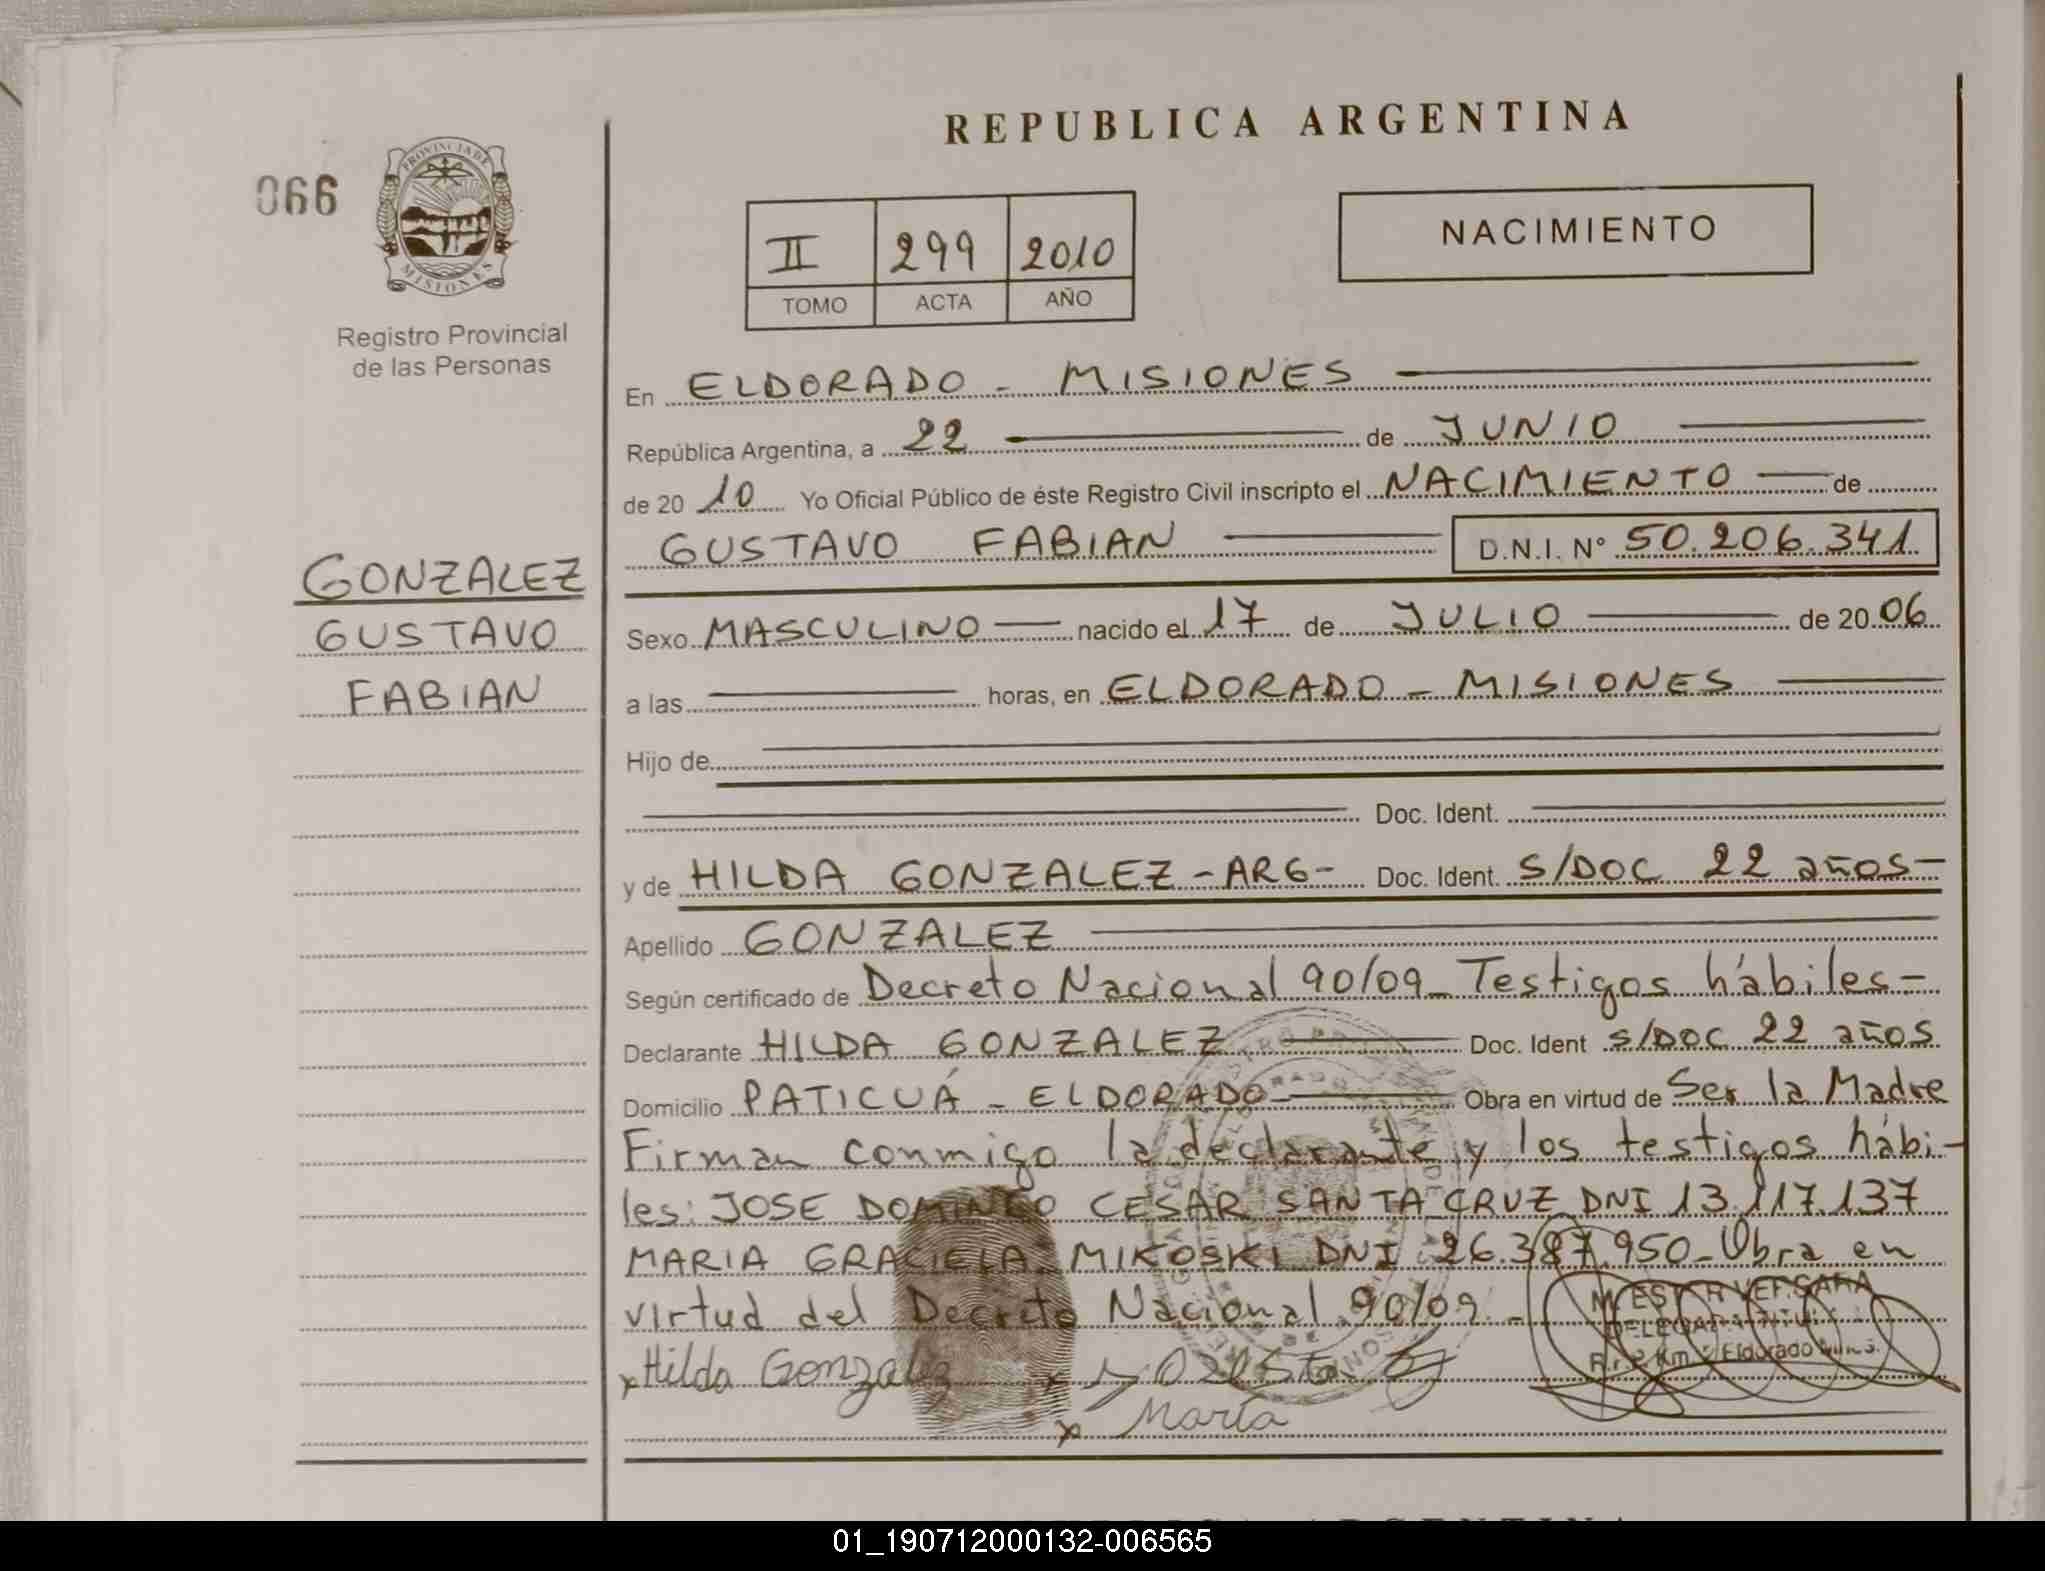 REPUBLICA ARGENTINA
066
PROVINCIA DE
MISIONES
Registro Provincial
de las Personas
II 299 2010
TOMO ACTA AÑO
NACIMIENTO
En ELDORADO - MISIONES
República Argentina, a 22 de JUNIO
de 20 10 Yo Oficial Público de éste Registro Civil inscripto el NACIMIENTO de
GUSTAVO FABIAN D.N.I. N° 50.206.341
GONZALEZ
GUSTAVO
FABIAN
Sexo MASCULINO nacido el 17 de JULIO de 20 06
a las horas, en ELDORADO - MISIONES
Hijo de
Doc. Ident.
y de HILDA GONZALEZ - ARG - Doc. Ident. S/DOC 22 años -
Apellido GONZALEZ
Según certificado de Decreto Nacional 90/09 - Testigos hábiles -
Declarante HILDA GONZALEZ Doc. Ident S/DOC 22 años
Domicilio PATICUÁ - ELDORADO - Obra en virtud de Ser la Madre
Firman conmigo la declarante y los testigos hábi-
les: JOSE DOMINGO CESAR SANTA CRUZ DNI 13.117.137
MARIA GRACIELA MIKOSKI DNI 26.387.950 - Obra en
virtud del Decreto Nacional 90/09 -
x Hilda Gonzalez x
x Maria
Eldorado
01_190712000132-006565